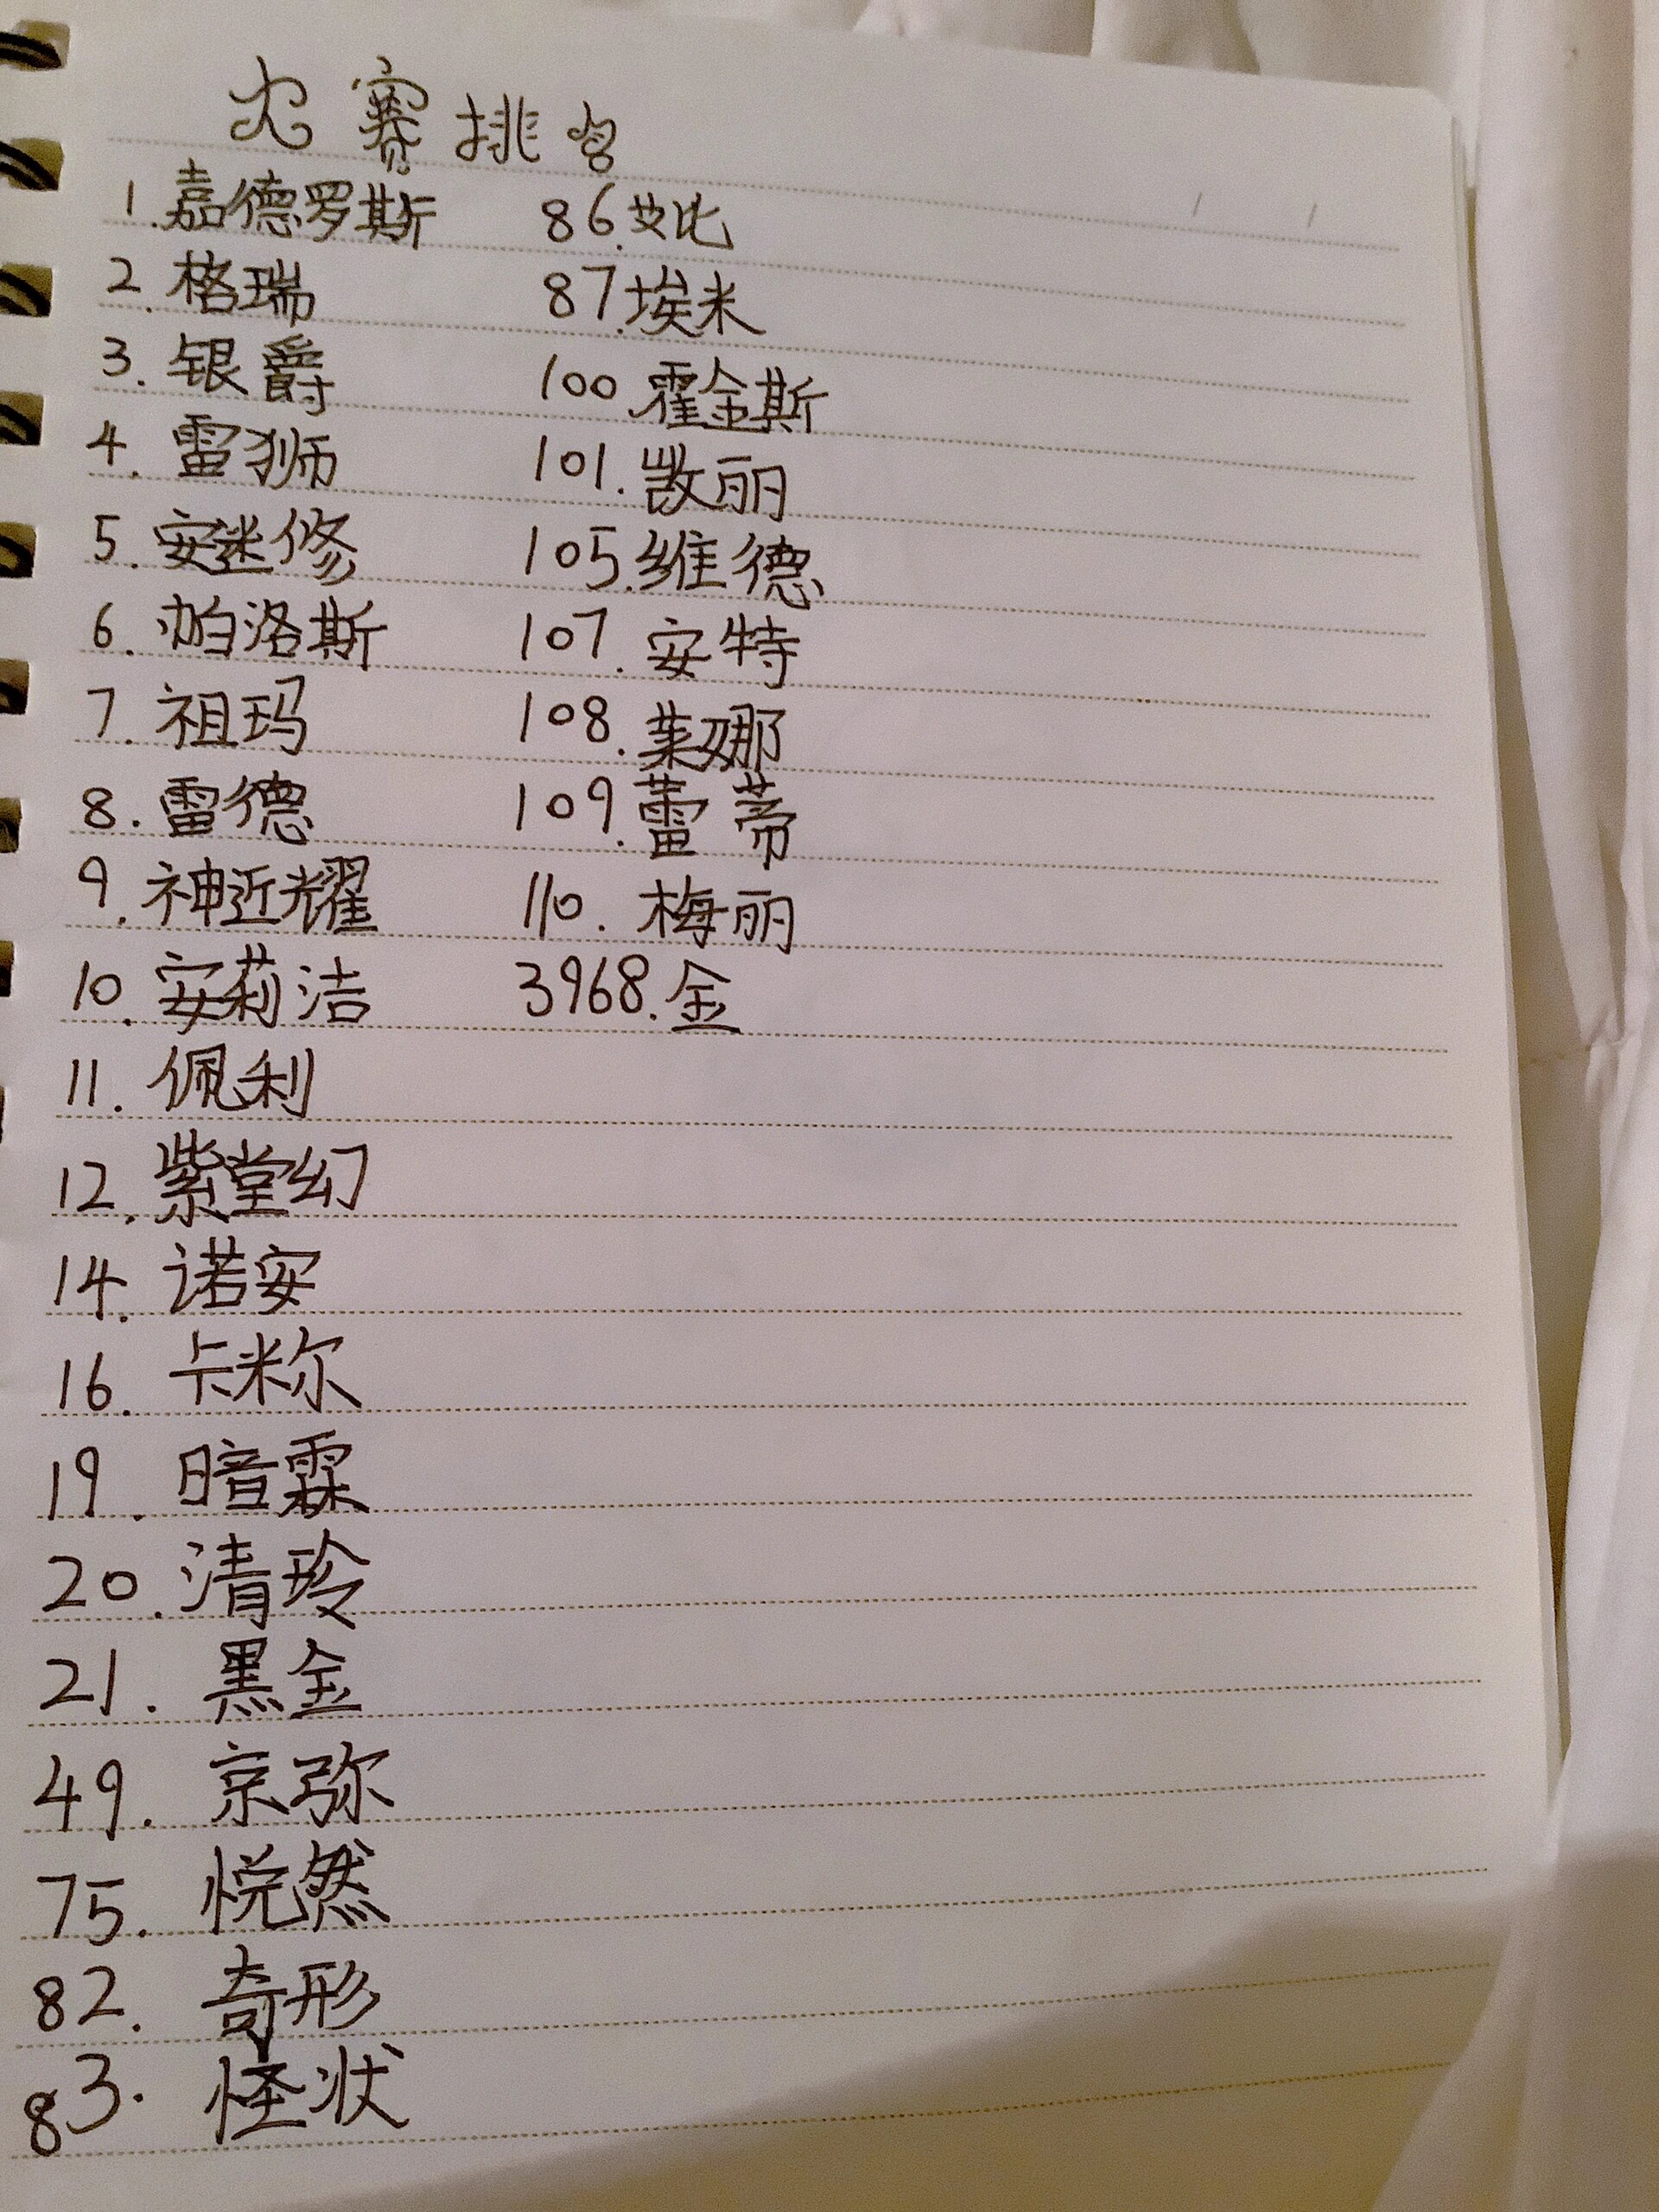 大赛排名
1.嘉德罗斯
2.格瑞
3.银爵
4.雷狮
5.安迷修
6.帕洛斯
7.祖玛
8.雷德
9.神近耀
10.安莉洁
11.佩利
12.紫堂幻
14.诺安
16.卡米尔
19.暗霖
20.清玲
21.黑金
49.京弥
75.悦然
82.奇形
83.怪状
86.艾比
87.埃米
100.霍金斯
101.凯丽
105.维德
107.安特
108.莱娜
109.蕾蒂
110.梅丽
3968.金